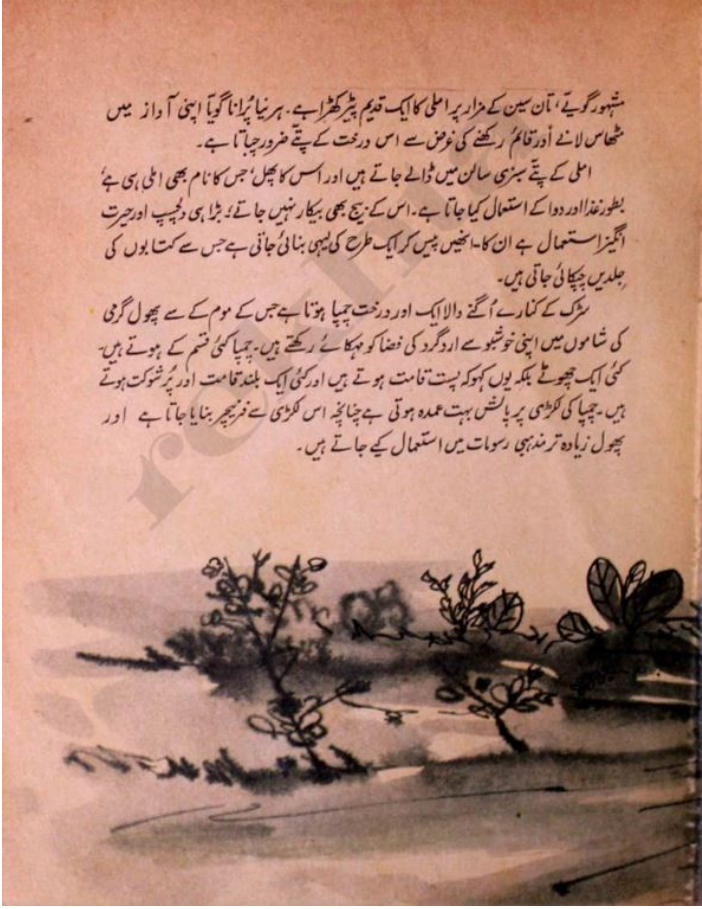 مشہور گویّے، تان سین کے مزار پر املی کا ایک قدیم پیڑ کھڑا ہے۔ ہر نیا پُرانا گویّا اپنی آواز میں
مٹھاس لانے اور قائم رکھنے کی غرض سے اس درخت کے پتّے ضرور چباتا ہے۔
املی کے پتّے سبزی سالن میں ڈالے جاتے ہیں اور اس کا پھل، جس کا نام بھی املی ہی ہے،
بطور غذا اور دوا کے استعمال کیا جاتا ہے۔ اس کے بیج بھی بیکار نہیں جاتے؛ بڑا ہی دلچسپ اور حیرت
انگیز استعمال ہے ان کا۔ انھیں پیس کر ایک طرح کی لیہی بنائی جاتی ہے جس سے کتابوں کی
جلدیں چپکائی جاتی ہیں۔
سڑک کے کنارے اُگنے والا ایک اور درخت چمپا ہوتا ہے جس کے موم کے سے پھول گرمی
کی شاموں میں اپنی خوشبو سے ارد گرد کی فضا کو مہکائے رکھتے ہیں۔ چمپا کئی قسم کے ہوتے ہیں۔
کئی ایک چھوٹے بلکہ یوں کہو کہ پست قامت ہوتے ہیں اور کئی ایک بلند قامت اور پُر شوکت ہوتے
ہیں۔ چمپا کی لکڑی پر پالش بہت عمدہ ہوتی ہے چنانچہ اس لکڑی سے فرنیچر بنایا جاتا ہے اور
پھول زیادہ تر مذہبی رسومات میں استعمال کیے جاتے ہیں۔